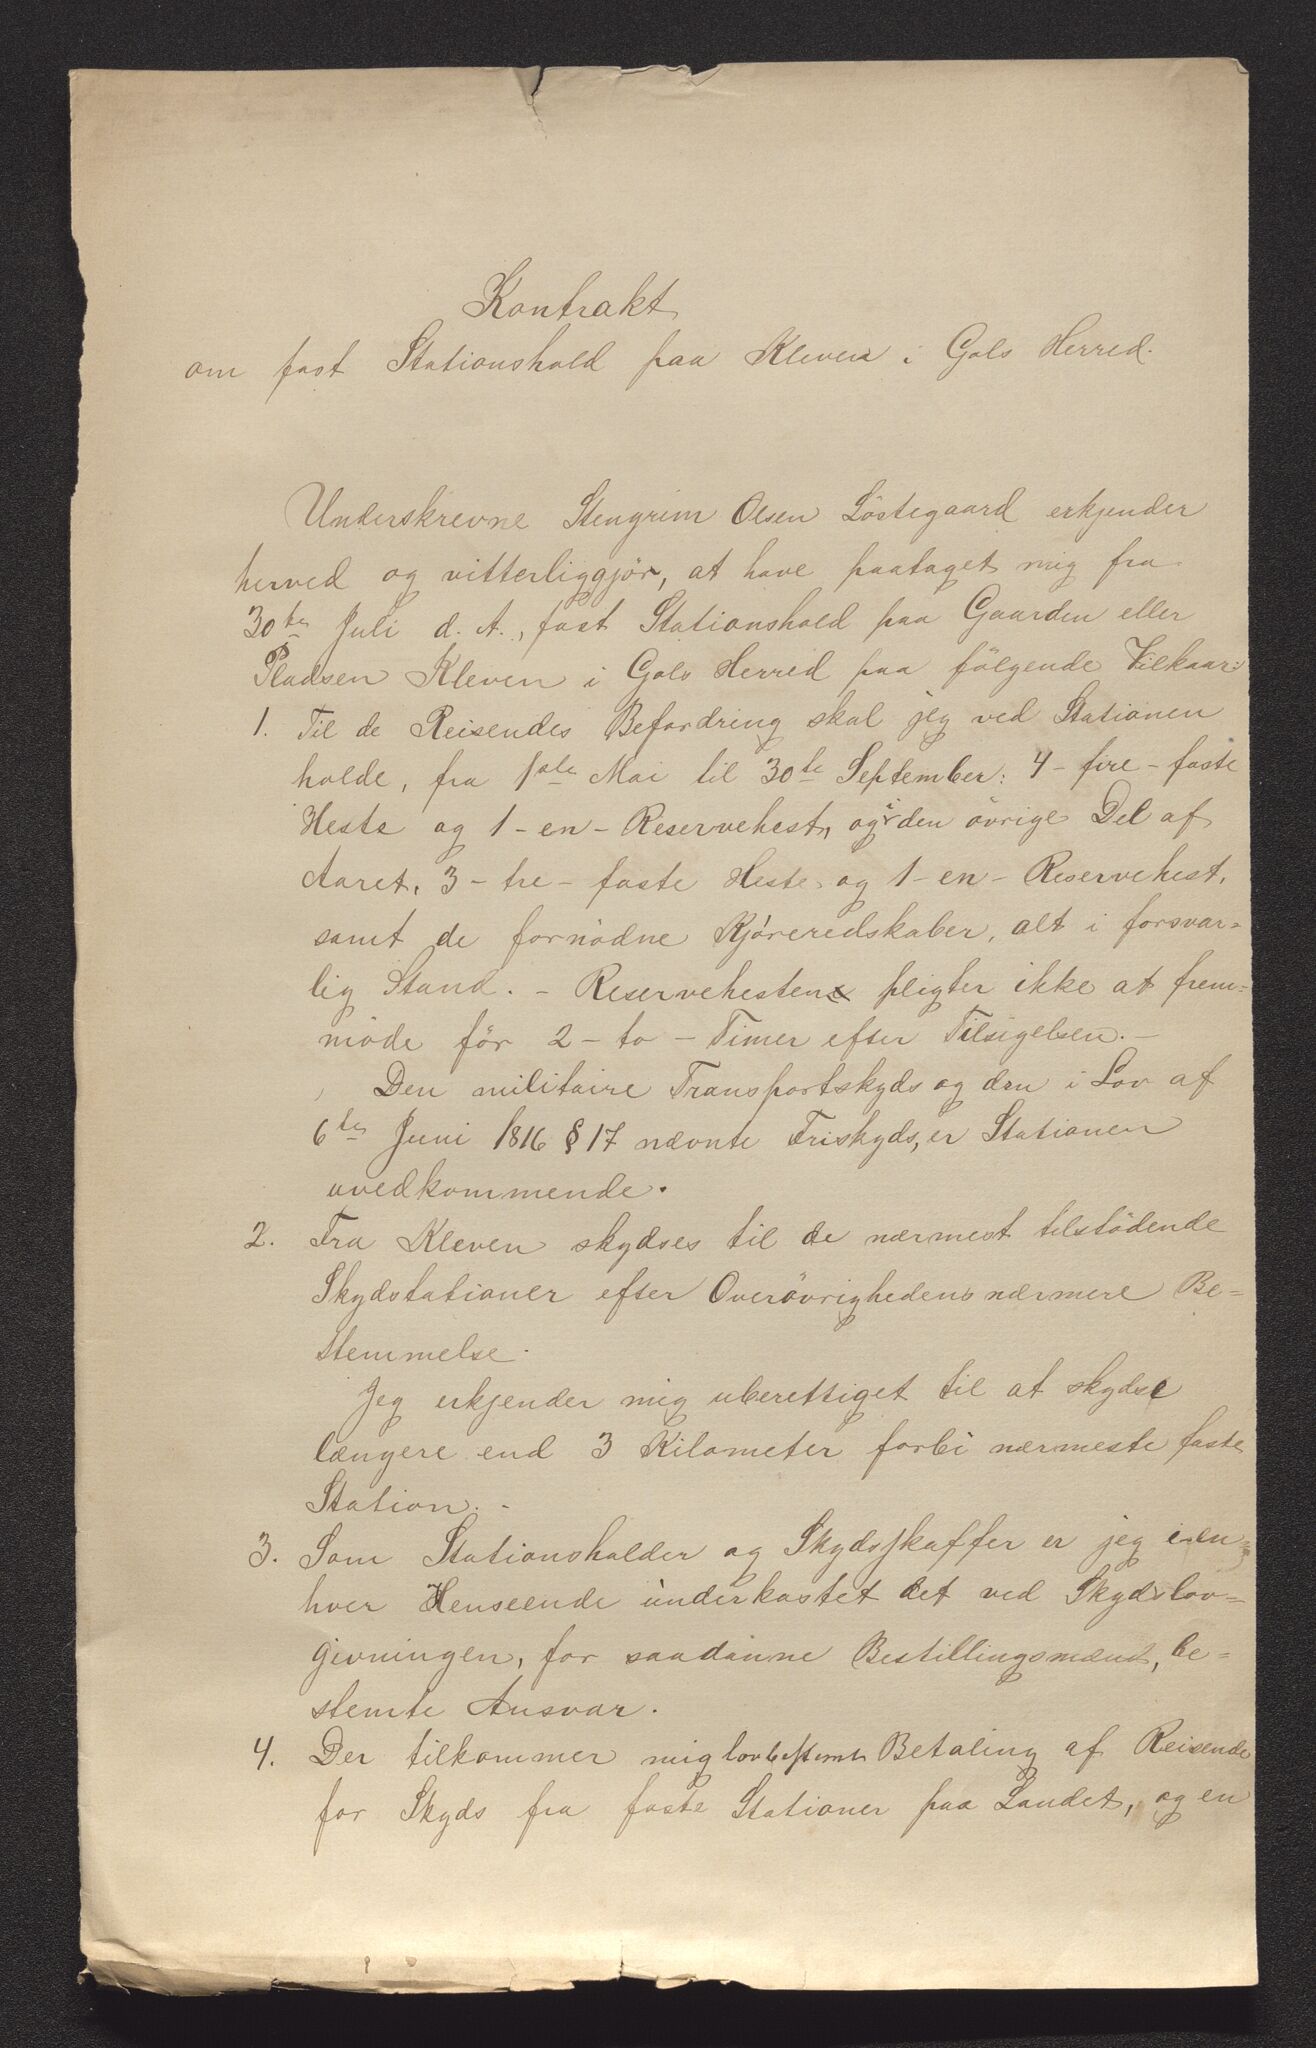 Kontrakt
om fast Stationshold paa Kleven i Gols Herred.
Underskrevne Stengrim Olsen Löstegaard erkjender
herved og vitterliggjör, at have paataget mig fra
30te Juli d. A., fast Stationshold paa Gaarden eller
Pladsen Kleven i Gols Herred paa fölgende Vilkaar:
1. Til de Reisendes Befordring skal jeg ved Stationen
holde, fra 1ste Mai til 30te September: 4 - fire - faste
Heste og 1 - en - Reservehest, og i den övrige Del af
Aaret, 3 - tre - faste Heste og 1 - en - Reservehest,
samt de fornödne Kjöreredskaber, alt i forsvar=
lig Stand. - Reservehesten pligter ikke at frem=
möde för 2 - to - Timer efter Tilsigelsen. -
Den militaire Transportskyds og den i Lov af
6te Juni 1816 § 17 nævnte Friskyds, er Stationen
uvedkommende.
2. Fra Kleven skydses til de nærmest tilstödende
Skydsstationer efter Overövrighedens nærmere Be=
stemmelse.
Jeg erkjender mig uberettiget til at skydse
længere end 3 Kilometer forbi nærmeste faste
Station. -
3. Som Stationsholder og Skydsskaffer er jeg i en=
hver Henseende underkastet det ved Skydslov=
givningen, for saadanne Bestillingsmænd, be=
stemte Ansvar.
4. Der tilkommer mig lovbestemt Betaling af Reisende
for Skyds fra faste Stationer paa Landet, og en